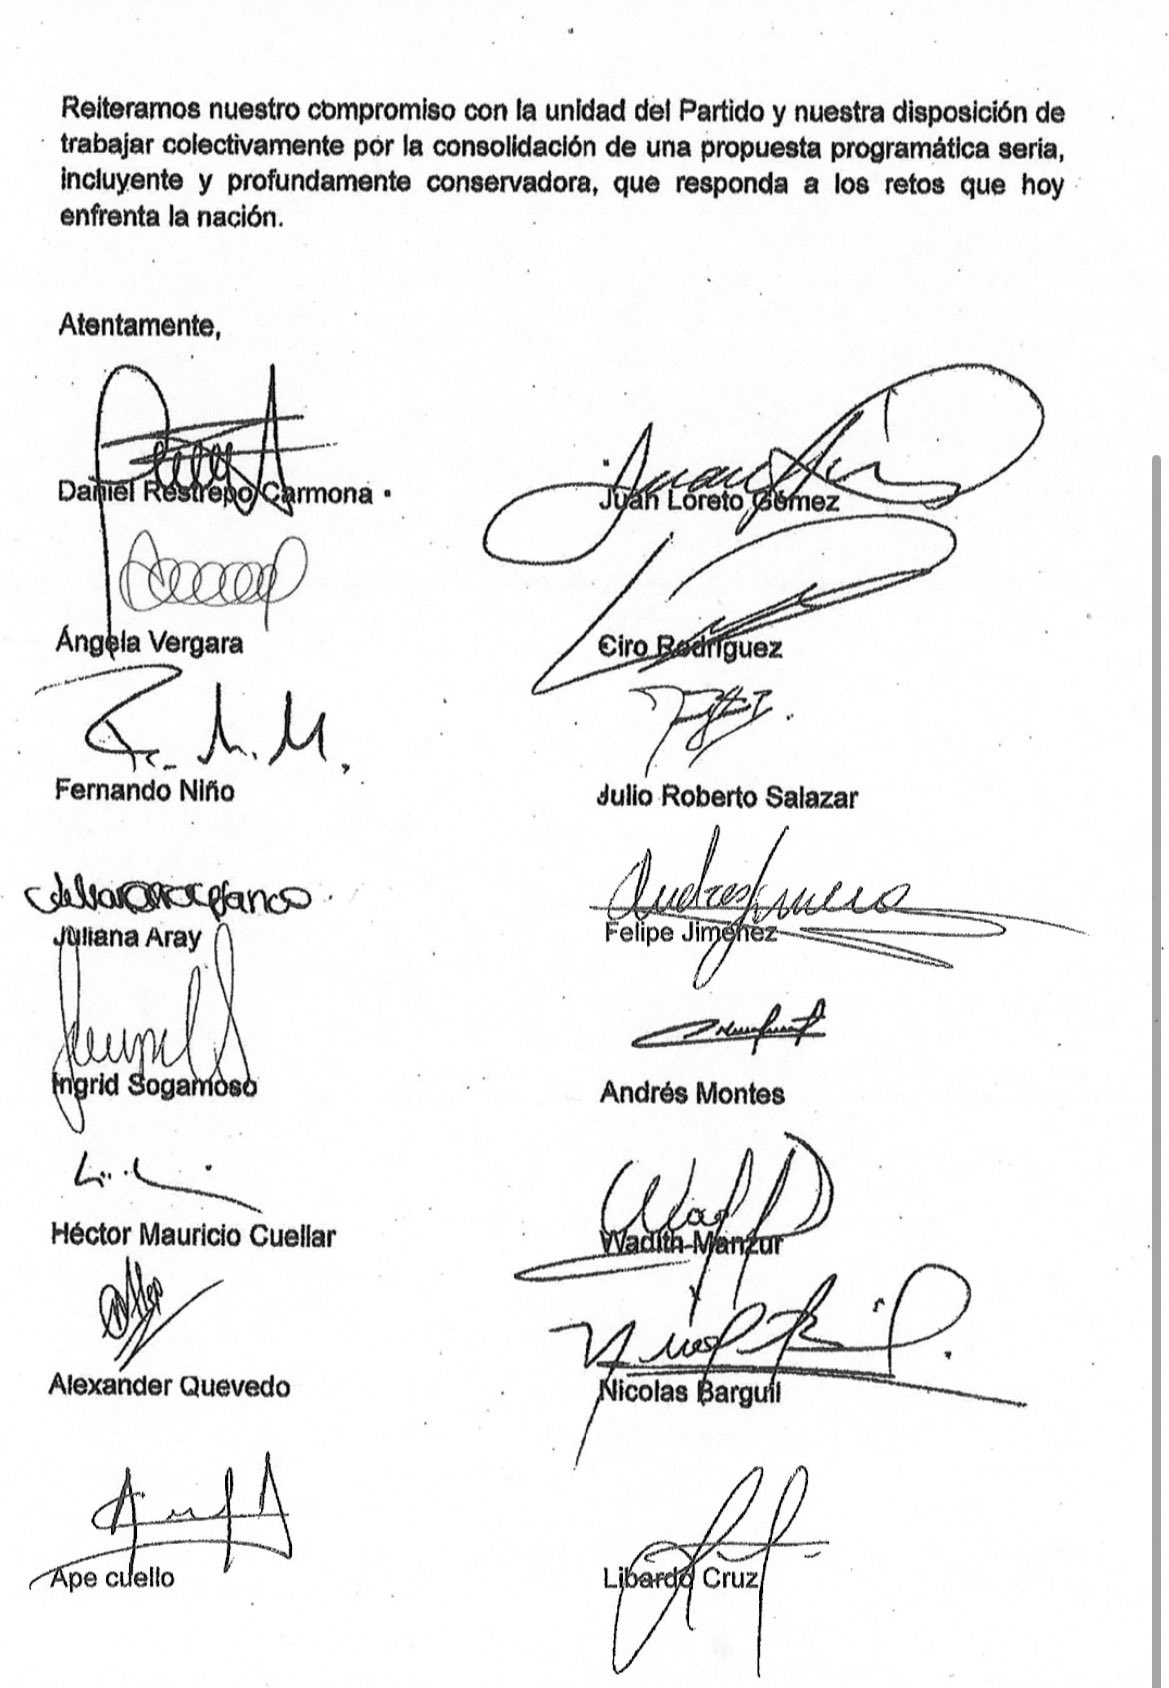 Reiteramos nuestro compromiso con la unidad del Partido y nuestra disposición de
trabajar colectivamente por la consolidación de una propuesta programática seria,
incluyente y profundamente conservadora, que responda a los retos que hoy
enfrenta la nación.
Atentamente,
Daniel Restrepo Carmona
Juan Loreto Gómez
Ángela Vergara
Ciro Rodríguez
Fernando Niño
Julio Roberto Salazar
Juliana Aray
Felipe Jiménez
Ingrid Sogamoso
Andrés Montes
Héctor Mauricio Cuellar
Wadith Manzur
Alexander Quevedo
Nicolas Barguil
Ape cuello
Libardo Cruz